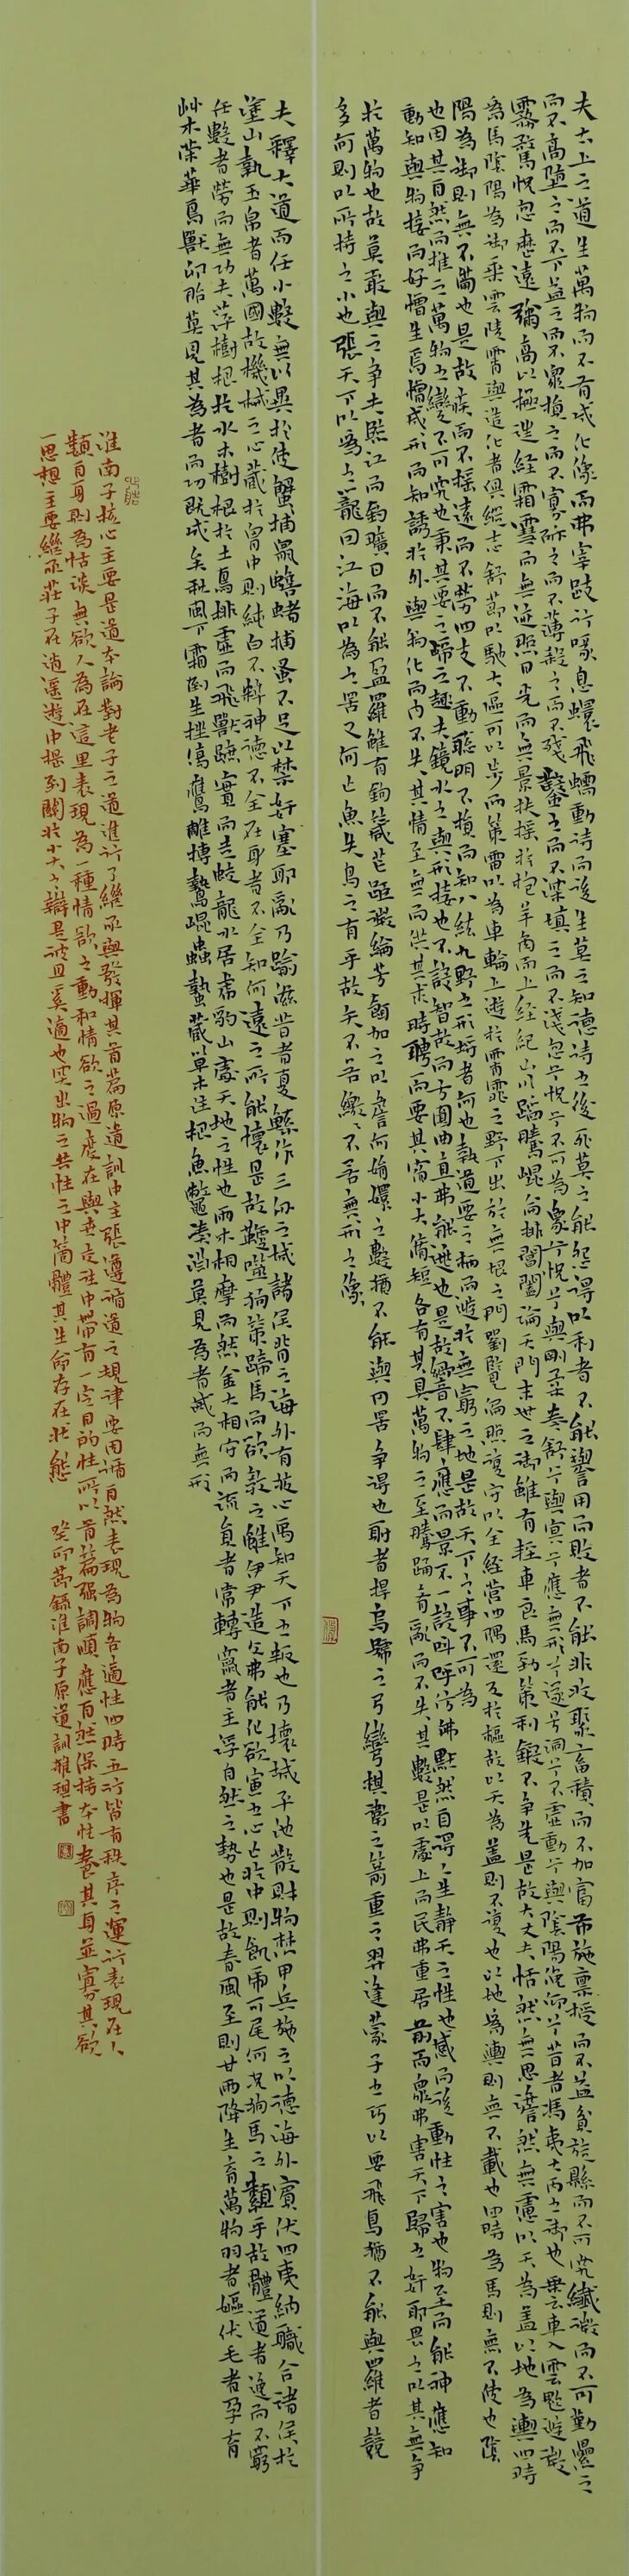 夫太上之道生萬物而不有成化像而弗宰跂行喙息蠉飛蠕動待而後生莫之知德待之後死莫之能怨得以利者不能譽用而敗者不能非收聚畜積而不加富布施稟授而不益貧旋縣而不可究纖微而不可勤累之
而不高墮之而不下益之而不眾損之而不寡斲之而不薄殺之而不殘鑿之而不深填之而不淺忽兮怳兮不可為象兮怳兮與剛柔卷舒兮與冥兮應無形兮遂兮洞兮不虛動兮與陰陽俛仰兮昔者馮夷大丙之御也乘雲車入雲
霧騖怳忽歷遠彌高以極往經霜雪而無迹照日光而無景扶搖抮抱羊角而上經紀山川蹈騰崑崙排閶闔淪天門末世之御雖有輕車良馬勁策利鍛不爭先是故大丈夫恬然無思澹然無慮以天為蓋以地為輿四時
為馬陰陽為御乘雲陵霄與造化者俱縱志舒節以馳大區可以步而策雷以為車輪上游於霄霓之野下出於無垠之門劉覽偏照復守以全經營四隅還反於樞故以天為蓋則不覆也以地為輿則無不載也四時為馬則無不使也陰
陽為御則無不備也是故疾而不搖遠而不勞四支不動聰明不損而知八紘九野之形埒者何也執道要之柄而游於無窮之地是故天下之事不可為
也因其自然而推之萬物之變不可究也秉其要之歸之趣夫鏡水之與形接也不設智故而方圓曲直弗能逃也是故響不肆應而景不一設叫呼仿彿默然自得人生靜天之性也感而後動性之害也物至而能神應知
動知與物接而好憎生焉憎成形而知誘於外與物化而內不失其情至無而供其求時聘而要其宿小大脩短各有其具萬物之至騰踊肴亂而不失其數是以處上而民弗重居前而眾弗害天下歸之奸邪畏之以其無爭
於萬物也故莫敢與之爭夫臨江而釣曠日而不能盈羅雖有鉤箴芒距微綸芳餌加之以詹何娟嬛之數猶不能與罔罟爭得也射者扞烏號之弓彎棋衛之箭重之羿逢蒙子之巧以要飛鳥猶不能與羅者競
多何則以所持之小也張天下以為之籠因江海以為之罟又何亡魚失鳥之有乎故矢不若繳繳不若無形之像
夫釋大道而任小數無以異於使蟹捕鼠蟾蠩捕蚤不足以禁奸塞邪亂乃踰滋昔者夏鯀作三仞之城諸侯背之海外有狡心禹知天下之叛也乃壞城平池散財物焚甲兵施之以德海外賓伏四夷納職合諸侯於
塗山執玉帛者萬國故機械之心藏於胷中則純白不粹神德不全在身者不全知何遠之所能懷是故鞭噬狗策蹄馬而欲教之雖伊尹造父弗能化欲寅之心亡於中則飢虎可尾何況狗馬之類乎故體道者逸而不窮
任數者勞而無功夫萍樹根於水木樹根於土鳥排虛而飛獸蹠實而走蛟龍水居虎豹山處天地之性也兩木相摩而然金火相守而流員者常轉窾者主浮自然之勢也是故春風至則甘雨降生育萬物羽者嫗伏毛者孕育
艸木榮華鳥獸卵胎莫見其為者而功既成矣秋風下霜倒生挫傷鷹雕搏鷙昆蟲蟄藏草木注根魚鱉湊淵莫見為者滅而無形
淮南子核心主要是道本論對老子之道進行了繼承與發揮其首篇原道訓中主張遵循道之規律要因循自然表現為物各適性四時五行皆有秩序之運行表現在人
類自身則為恬淡無欲人為在這里表現為一種情欲之動和情欲之過度在與世交往中帶有一定目的性所以首篇强調順應自然保持本性養其身並寡其欲
一思想主要繼承莊子在逍遥遊中提到關於小大之辯是彼且奚適也突出物之共性之中箇體其生命存在狀態 癸卯節錄淮南子原道訓雅琪書